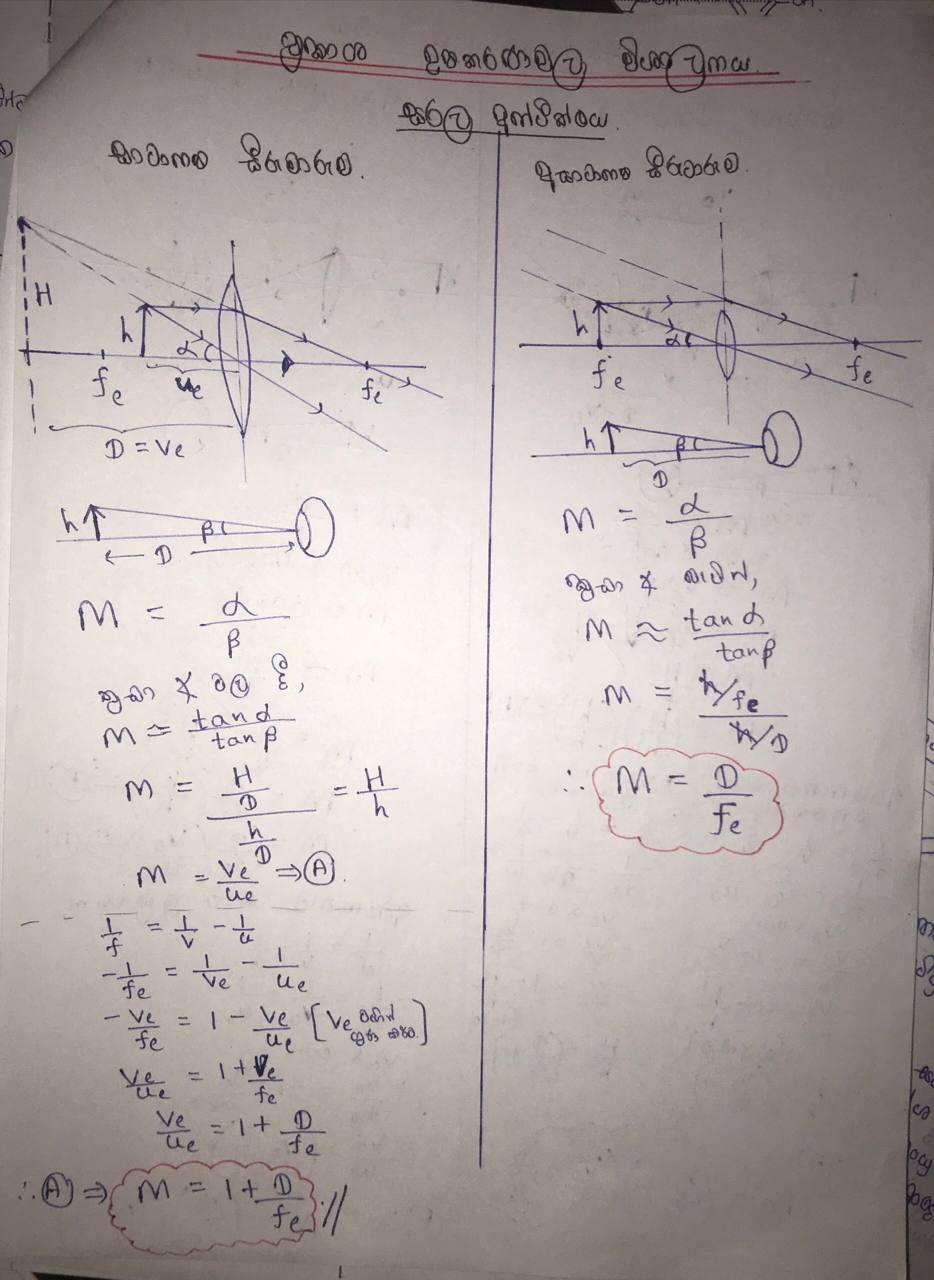 ප්‍රකාශ උපකරණවල විශාලනය.
සරල අන්වීක්ෂය.
සාමාන්‍ය සීරුමාරුව.
H
h
α
fe
ue
fe
D = Ve
h
β
D
M = α/β
කුඩා ∢ වල දී,
M ≈ tan α / tan β
M = (H/D)/(h/D) = H/h
M = Ve/ue ⇒ Ⓐ.
1/f = 1/v - 1/u
-1/fe = 1/Ve - 1/ue
-Ve/fe = 1 - Ve/ue [Ve වලින් ගුණ කරම.]
Ve/ue = 1 + Ve/fe
Ve/ue = 1 + D/fe
∴ Ⓐ ⇒ M = 1 + D/fe //
අසාමාන්‍ය සීරුමාරුව.
h
α
fe
fe
h
β
D
M = α/β
කුඩා ∢ බැවින්,
M ≈ tan α / tan β
M = (h/fe)/(h/D)
∴ M = D/fe